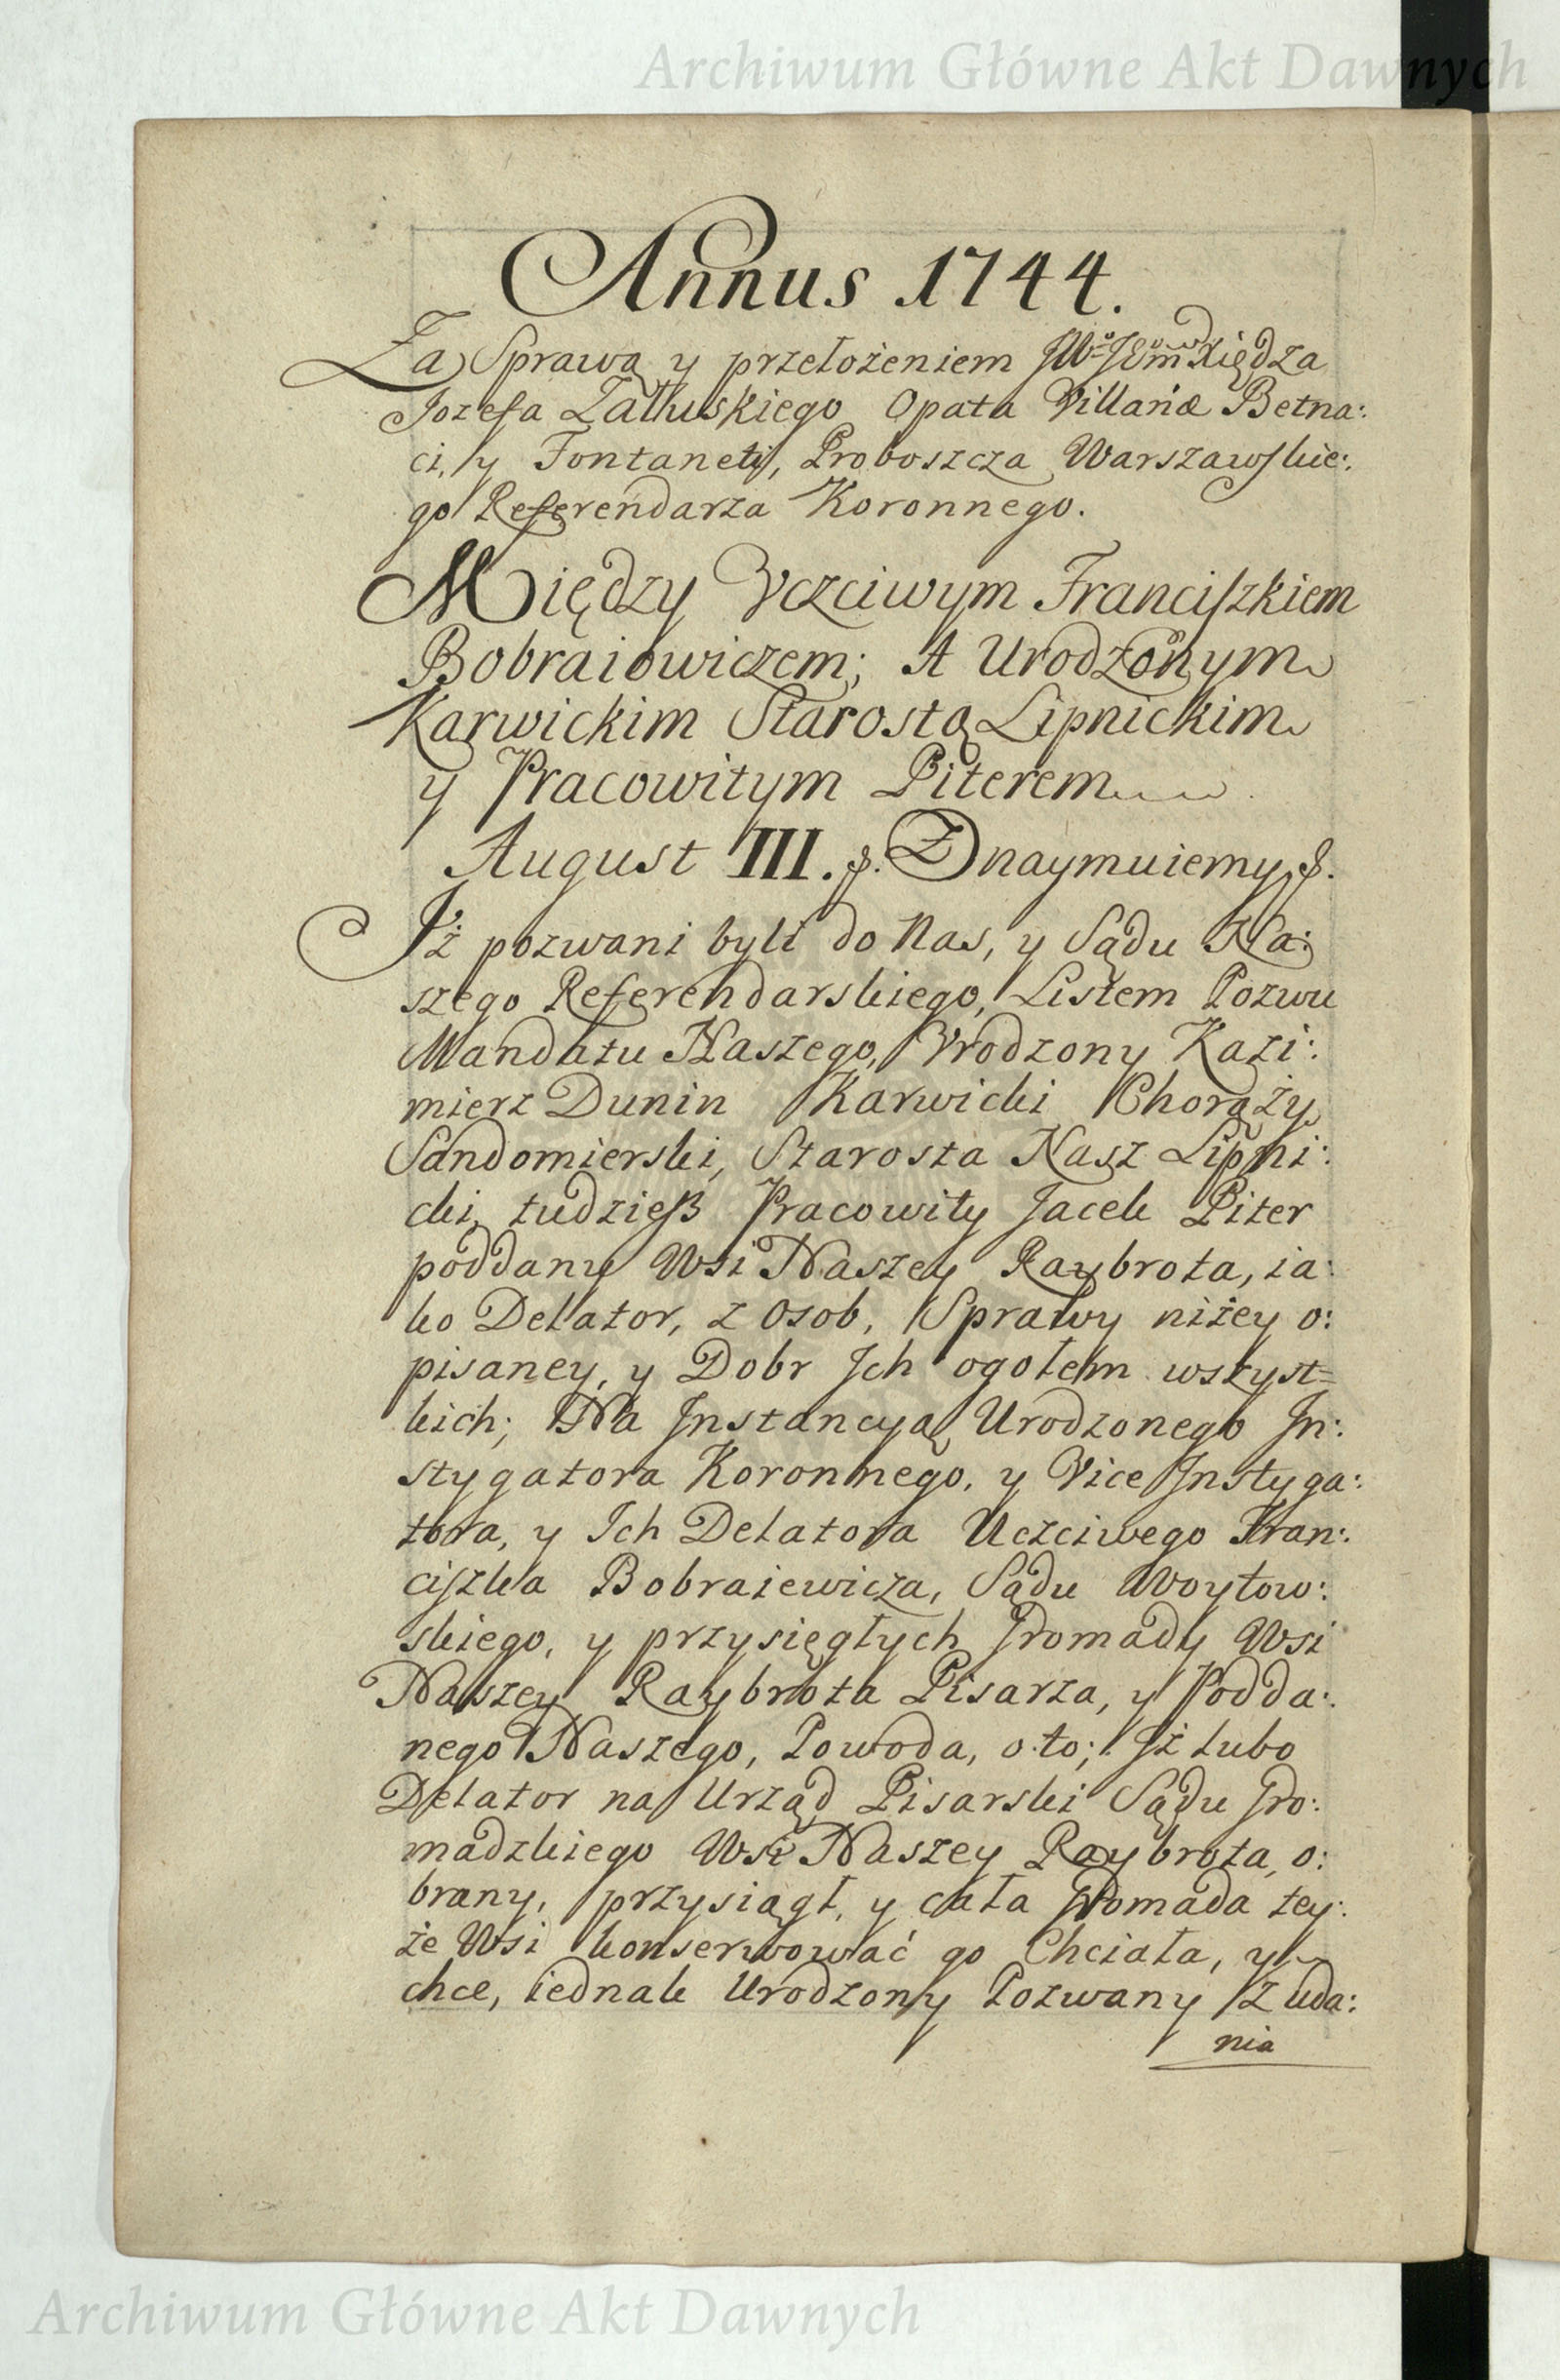 Archiwum Główne Akt Dawnych
Annus 1744.
Za Sprawą y przełożeniem JWo JEmo Xiędza
Jozefa Załłuskiego Opata Villariæ Betna:
ci, y Fontaneti, Proboszcza Warszawskie:
go Referendarza Koronnego.
Między Vczciwym Franciszkiem
Bobraiowiczem; A Urodzonym
Karwickim Starostą Lipnickim
y Pracowitym Piterem
August III. &. Znaymuiemy &.
Jż pozwani byli do Nas, y Sądu Na:
szego Referendarskiego, Listem Pozwu
Mandatu Naszego, Vrodzony Kazi:
mierz Dunin Karwicki Chorąży
Sandomierski, Starosta Nasz Lipni:
cki, tudzieß Pracowity Jacek Piter
poddany Wsi Naszey Raybrota, ia:
ko Delator, z Osob, Sprawy niżey o:
pisaney, y Dobr Jch ogołem wszyst=
kich; Na Jnstancyą Urodzonego Jn:
stygatora Koronnego, y Vice Jnstyga:
tora, y Ich Delatora Uczciwego Fran:
ciszka Bobraiewicza, Sądu Woytow:
skiego, y przysięgłych Gromady Wsi
Naszey Raybrota Pisarza, y Podda:
nego Naszego, Powoda, o to; Jż lubo
Delator na Urząd Pisarski Sądu Gro:
madzkiego Wsi Naszey Raybrota, o:
brany, przysiągł, y cała Gromada tey:
że Wsi konserwować go Chciała, y
chce, iednak Urodzony Pozwany z uda:
nia
Archiwum Główne Akt Dawnych